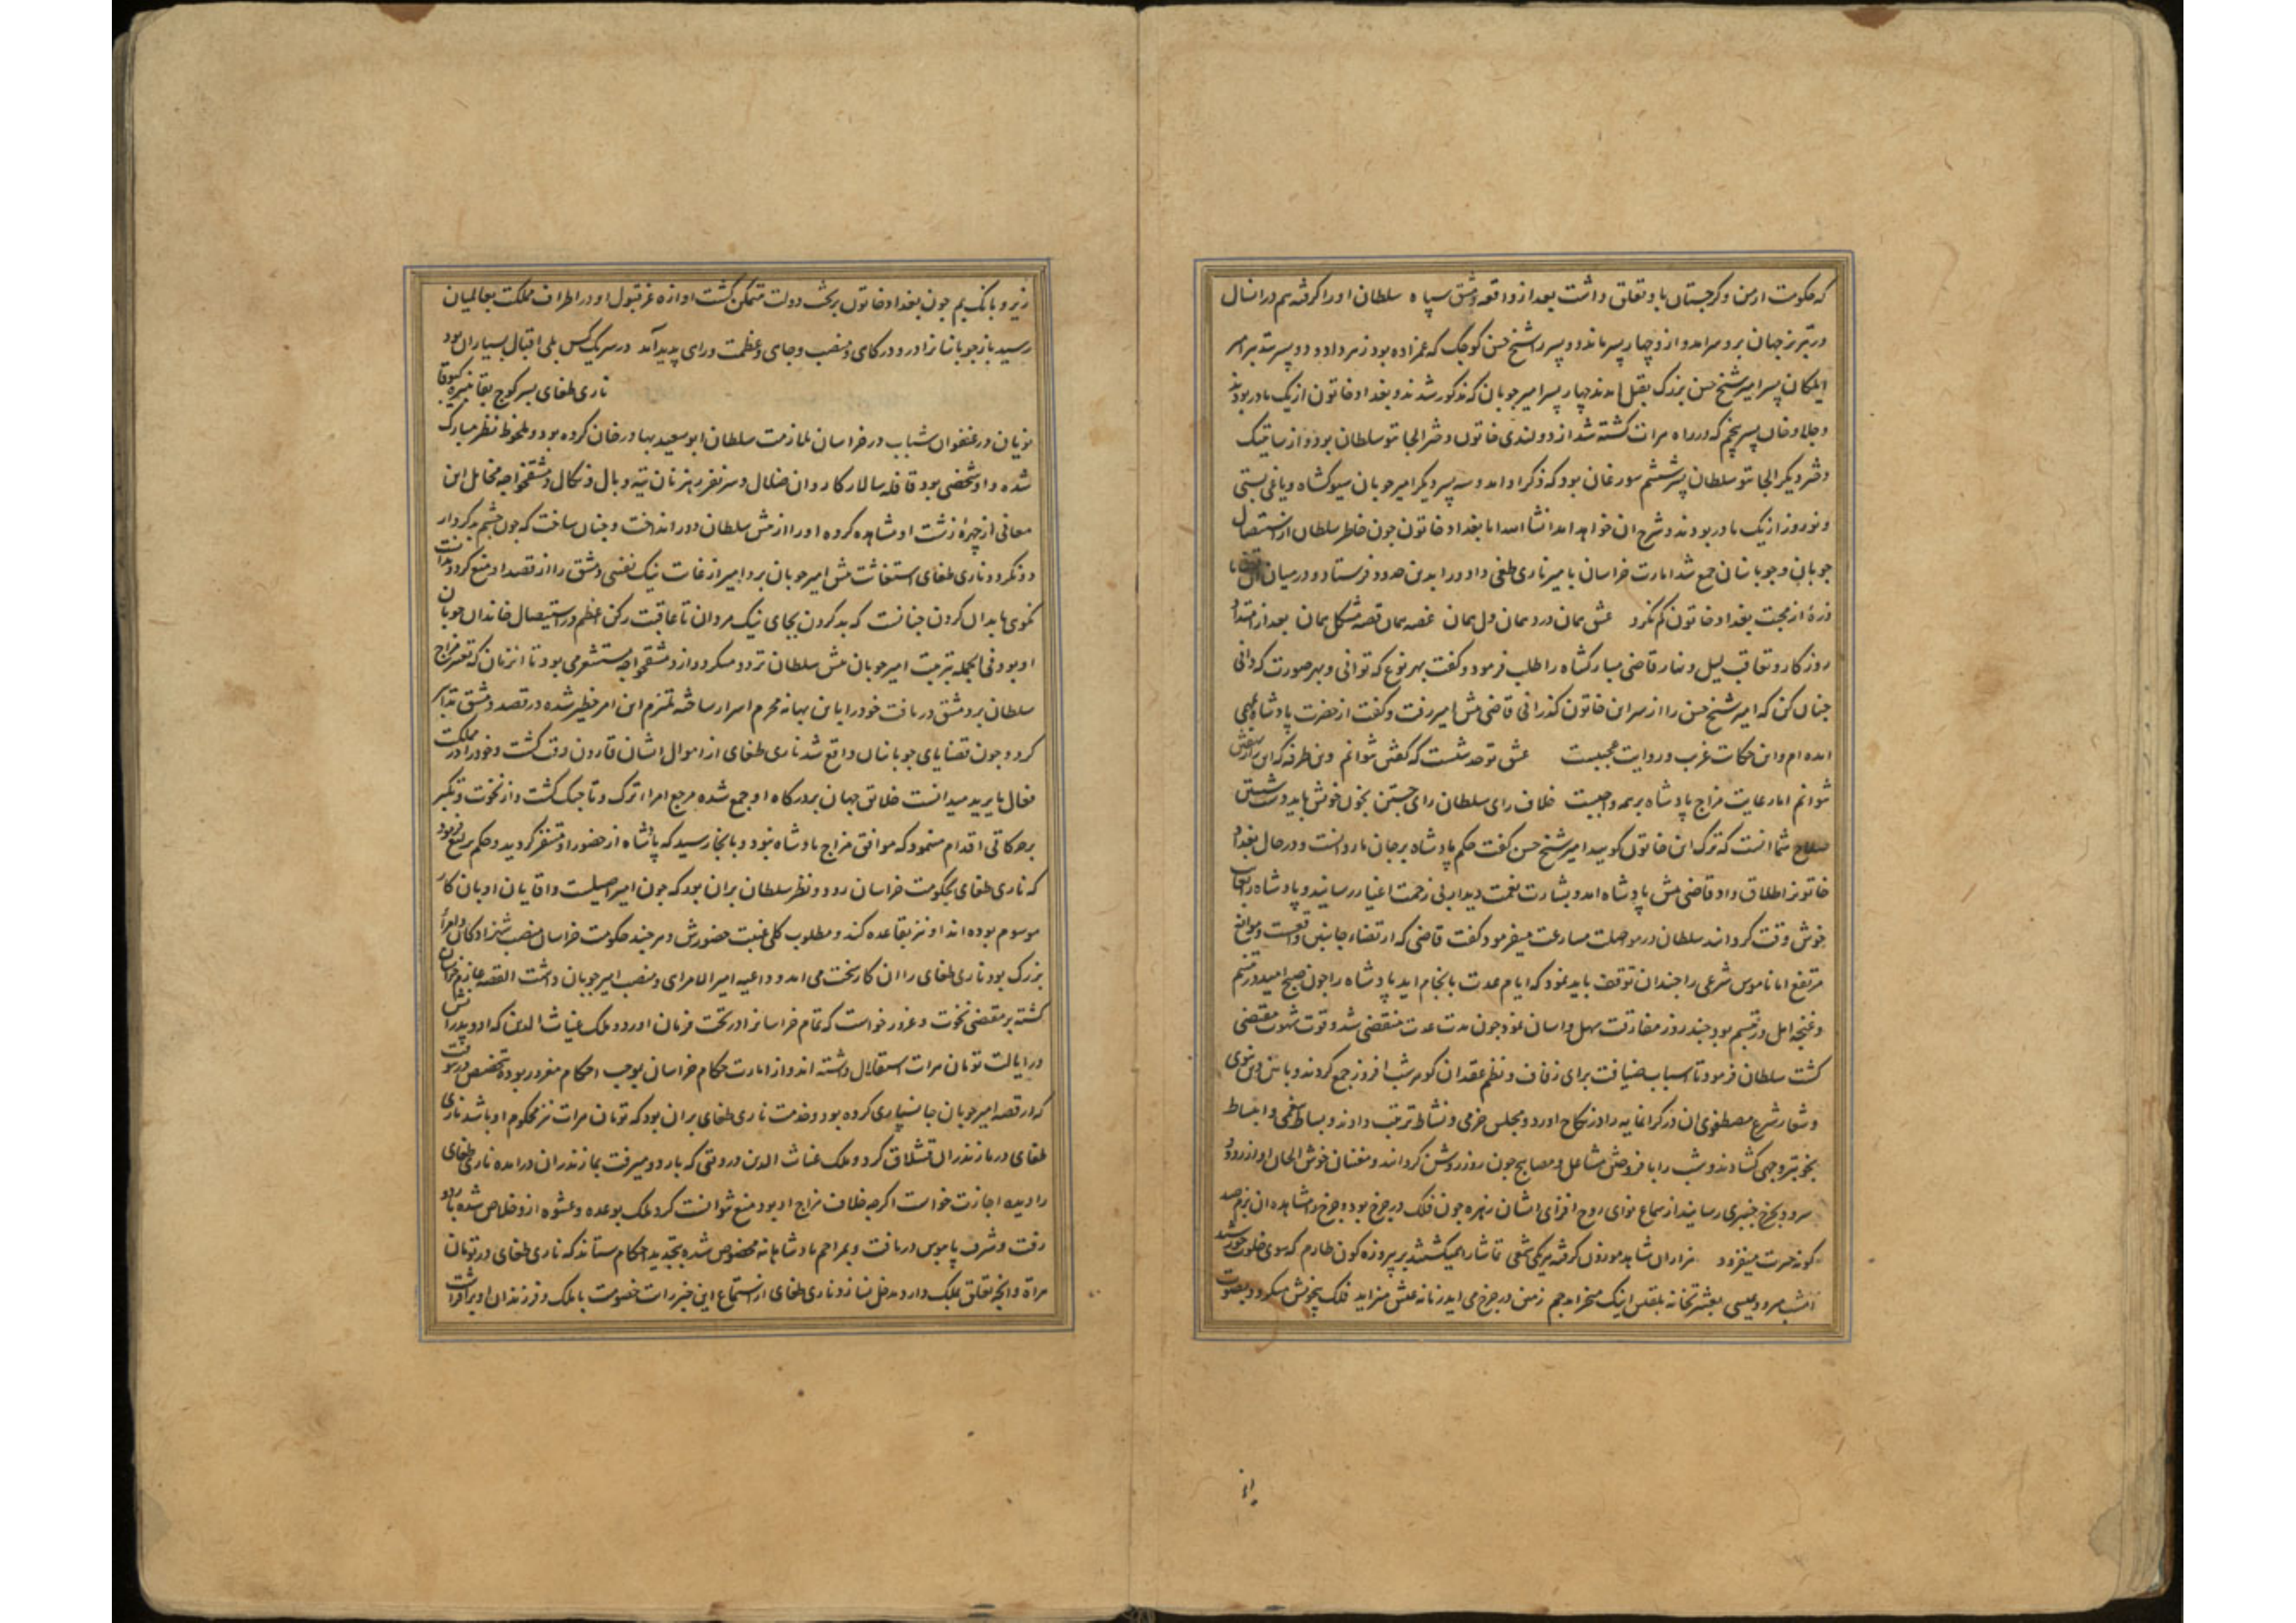 که حکومت ارمن و کرجستان باو تعلق داشت بعد از واقعه دمشق سپاه سلطان او را کرفته هم در انسال
در تبریز بجهان برو سرامد و از و چهار پسر ماند دو پسر را شیخ حسن کوجک که عمزاده بود زهر داد و دو پسر
ایلکان پسر امیر شیخ حسن بزرک بقتل امدند چهار پسر امیر جوبان که مذکور شدند و بغداد خاتون از یک مادر بودند
و جلاو خان پسر پنجم که در راه مرات کشته شد از دولندی خاتون دختر الجایتو سلطان بود و از ساتیبک
دختر دیکر الجایتو سلطان پسر ششم سورغان بود که ذکر او امد و سه پسر دیکر امیر جوبان سیوکشاه و یاغی بستی
و نوروز از یک مادر بودند و شرح ان خواهد امد انشا الله اما بغداد خاتون جون خاطر سلطان از استیصال
جوبان و جوبانیان جمع شد امارت خراسان با میر ناری طغی داد و را بدین حدود فرستاد و در میان ان
ذره از محبت بغداد خاتون کم نکرد عشق همان درد همان دل همان غصه همان قصه مشکل همان بعد از امتداد
روزکار و تعاقب لیل و نهار قاضی مبارکشاه را طلب فرمود و کفت بهر نوع که توانی و بهر صورت که دانی
جنان کن که امیر شیخ حسن را از سر این خاتون کذرانی قاضی پیش امیر رفت و کفت از حضرت پادشاه بمهمی
امده ام و این حکایت غریب و روایت عجیبست عشق تو حدیثیست که کفتن نتوانم وین طرفه که این نهفتن
نتوانم اما رعایت مزاج پادشاه بر همه واجبست خلاف رای سلطان رای جستن بخون خویش باید دست شستن
صلاح شما انست که ترک این خاتون کویید امیر شیخ حسن کفت حکم پادشاه بر جان ما رواست و در حال بغداد
خاتونرا طلاق داد قاضی پیش پادشاه امد و بشارت نعمت دیدار بی زحمت اغیار رسانید و پادشاه را
خوش وقت کردانید سلطان در مواصلت مسارعت میفرمود کفت قاضی که ارتضاء جانبین واقعست و موانع
مرتفع اما ناموس شرعی را جندان توقف باید نمود که ایام عدت بانجام اید پادشاه را جون صبح امید در تبسم
و غنجه امل در تبسم بود جند روز مفارقت سهل و اسان نمود جون مدت عدت منقضی شد و قوت شهوت مقتضی
کشت سلطان فرمود تا اسباب ضیافت برای زفاف و نظم عقد ان کوهر شب افروز جمع کردند و بایین دین نبوی
و شعار شرع مصطفوی ان در کرانمایه را در نکاح اورد و مجلس خرمی و نشاط ترتیب دادند و بساط و انبساط
بخوبتر وجهی کشادند و شب را با فروختن مشاعل و مصابیح جون روز روشن کردانیدند و مغنیان خوش الحان اواز رود و
سرود بجرخ جنبری رسانیدند از سماع نوای روح افزای ایشان زهره جون فلک در جرخ بود و جرخ در مشاهده ان بزم صد
کونه حسرت میفزود هزاران شاهد موزون کرفته هر یکی شمعی تماشا را همیکشتند بر پیروزه کون طارم که سوی خلوت خورشید
امشب میرود عیسی بعشرتخانه بلقیس اینک میخرامد جم زمین در جرخ می اید زمانه عیش میزاید فلک
زیر و بانک بم جون بغداد خاتون بر تخت دولت متمکن کشت اوازه عز قبول او در اطراف مملکت بعالمیان
رسید باز جوبانیانرا در و درکاهی و منصب و جاهی و عظمت و رای پدید آمد در سر یک کس بلی اقبال بسیاران بود
ناری طغای پسر کوج بقا نبیره کتبوقا
نویان در عنفوان شباب در خراسان ملازمت سلطان ابو سعید بهادر خان کرده بود و ملحوظ نظر مبارک
شده و او شخصی بود قافله سالار کاروان ضلال و سر نفر رهزنان تیه وبال و نکال دمشقخواجه مخایل این
معانی از چهره زشت او مشاهده کرده او را از پیش سلطان دور انداخت و جنان ساخت که جون چشم بد کردار
دو نکرد و ناری طغای استغاثت پیش امیر جوبان برد امیر از غایت نیک نفسی دمشق را از قصد او منع کرد و ندانست
نکویی با بدان کردن جنانست که بد کردن بجای نیک مردان تا عاقبت رکن اعظم در استیصال خاندان جوبان
او بود فی الجمله بتربیت امیر جوبان پیش سلطان تردد میکرد و از دمشقخواجه مستشعر می بود تا انزمان که تغیر مزاج
سلطان بر دمشق دریافت خود را باین بهانه محرم اسرار ساخته ملتزم این امر خطیر شده در قصد دمشق تدابیر
کرد و جون قضایای جوبانیان واقع شد ناری طغای از اموال ایشان قارون وقت کشت و خود را در مملکت
فعال ما یرید میدانست خلایق جهان بر درکاه او جمع شده مرجع امرا ترک و تاجیک کشت و از نخوت و تکبر
بحرکاتی اقدام مینمود که موافق مزاج پادشاه نبود و بانجا رسید که پادشاه از حضور او متنفر کردید و حکم یرلیغ فرمود
که ناری طغای بحکومت خراسان رود و نظر سلطان بران بود که جون امیر اصیلست و اقایان او بان کار
موسوم بوده اند او نیز بقاعده کند و مطلوب کلی غیبت حضورش و هرجند حکومت خراسان منصب شهزادکان و امراء
بزرک بود ناری طغای را ان کار سخت می امد و داعیه امیر الامرایی و منصب امیر جوبان داشت القصه عازم خراسان
کشته بر مقتضی نخوت و غرور خواست که تمام خراسانرا در تحت فرمان اورد و ملک غیاث الدین که او و پدرانش
در ایالت تومان هرات استقلال داشته اند و از امارت حکام خراسان بموجب احکام مفروز بوده بتخصیص درین وقت
که در قصه امیر جوبان جانسپاری کرده بود و خدمت ناری طغای بران بود که تومان هرات نیز محکوم او باشد ناری
طغای در مازندران قشلاق کرد و ملک غیاث الدین در وقتی که باردو میرفت بمازندران درامده ناری طغای
را دیده اجازت خواست اکرچه خلاف مزاج او بود منع نتوانست کرد ملک بوعده و عشوه از و خلاص شده باردو
رفت و شرف پابوس دریافت و بمراحم پادشاهانه مخصوص شده بتجدید احکام ستاند که ناری طغای در تومان
هراة و انجه تعلق بملک دارد مدخل نسازد و ناری طغای از استماع این خبر رایت خصومت با ملک و فرزندان او بر افراشت